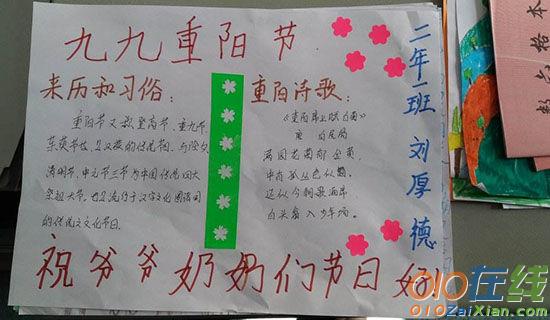 九九重阳节
来历和习俗：
重阳节又称登高节、重九节、
茱萸节, 是汉族的传统节日, 与除夕、
清明节、中元节三节为中国传统四大
祭祖大节。也是流行于汉字文化圈诸国
的传统文化节日。
重阳诗歌：
《重阳席上赋白菊》
唐 白居易
满园花菊郁金黄，
中有孤丛色似霜。
还似今朝歌酒席，
白头翁入少年场。
二年一班 刘厚德
祝爷爷奶奶们节日好
数
格本
010在线
010ZaiXian.com